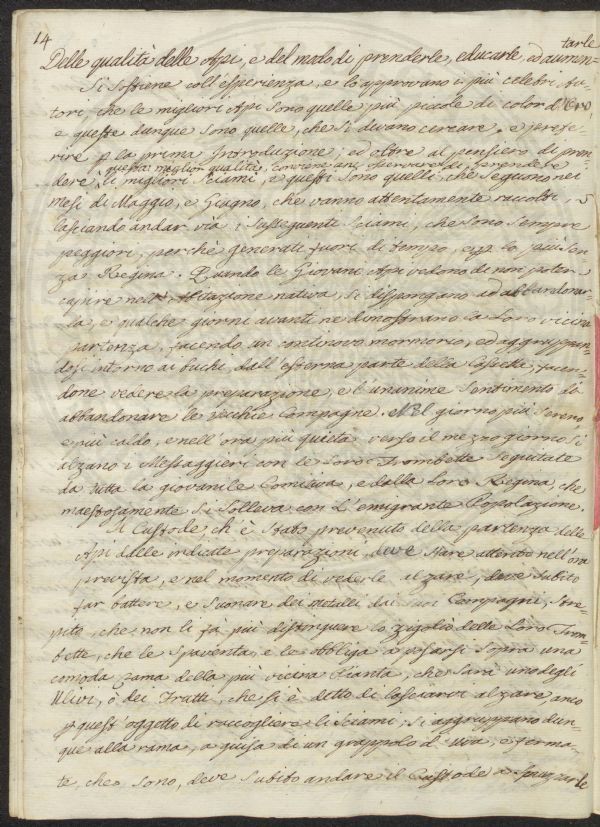 14
Delle qualità delle Api, e del modo di prenderle, educarle, ed aumen=
tarle
Si sostiene coll'esperienza, e lo approvano i più celebri Au-
tori, che le migliori Api sono quelle più piccole di color d'Oro,
e queste dunque sono quelle, che si devano cercare, e prefe-
rire p la prima Introduzione; ed oltre al pensiero di pren-
questa miglior qualità, conviene ancor osservare di prendere
dere, li migliori Sciami, e questi sono quelli, che seguono nei
mesi di Maggio, e Giugno, che vanno attentamente raccolti,
lasciando andar via i susseguenti Sciami, che sono sempre
peggiori, perchè generati fuori di tempo, e p lo più sen
za Regina. Quando le Giovani Api vedono di non poter
capire nell'Abitazione nativa, si dispongano ad abbandonar-
la, e qualche giorni avanti ne dimostrano la Loro vicina
partenza, facendo un continovo mormorio, ed aggruppan-
dosi intorno ai buchi, dall'esterna parte della Cassetta, facen-
done vedere la preparazione, e l'unanime Sentimento di
abbandonare le vecchie Compagne. Nel giorno più Sereno,
e più caldo, e nell'ora più quieta verso il mezzo giorno si
alzano i Messaggieri con le Loro Trombette seguitate
da tutta la giovanile Comitiva, e dalla Loro Regina, che
maestosamente si solleva con L'emigrante Popolazione.
Il Custode ch'è stato prevenuto della partenza delle
Api dalle indicate preparazioni, deve stare attento nell'ora
prevista, e nel momento di vederle alzare, deve subito
far battere, e suonare dei metalli dai suoi Compagni, stre-
pito, che non li fa più distinguere lo zigolio delle Loro Trom
bette, che le spaventa, e le obbliga a posarsi sopra una
comoda rama della più vicina Pianta, che sarà uno degli
Ulivi, o dei Frutti, che si è detto di lasciarvi alzare, anco
p quest'oggetto di raccogliere li Sciami; si aggruppano dun-
que alla rama, a guisa di un grappolo d'uva, e ferma-
te, che sono, deve subito andare il Custode a spruzzarle